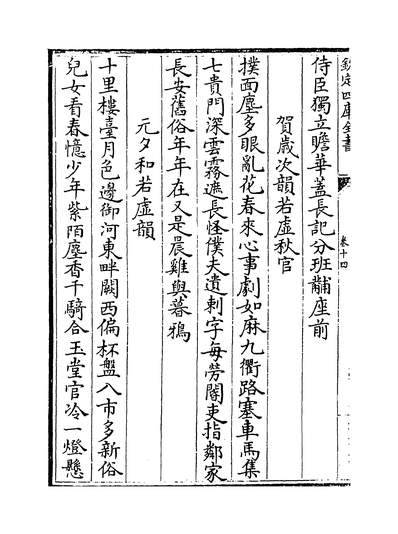 欽定四庫全書
卷十四
侍臣獨立瞻華蓋長記分班黼座前
賀歲次韻若虛秋官
撲面塵多眼亂花春來心事劇如麻九衢路塞車馬集
七貴門深雲霧遮長怪僕夫遺刺字每勞閽吏指鄰家
長安舊俗年年在又是晨雞與暮鴉
元夕和若虛韻
十里樓臺月色邊御河東畔闕西偏杯盤入市多新俗
兒女看春憶少年紫陌塵香千騎合玉堂官冷一燈懸